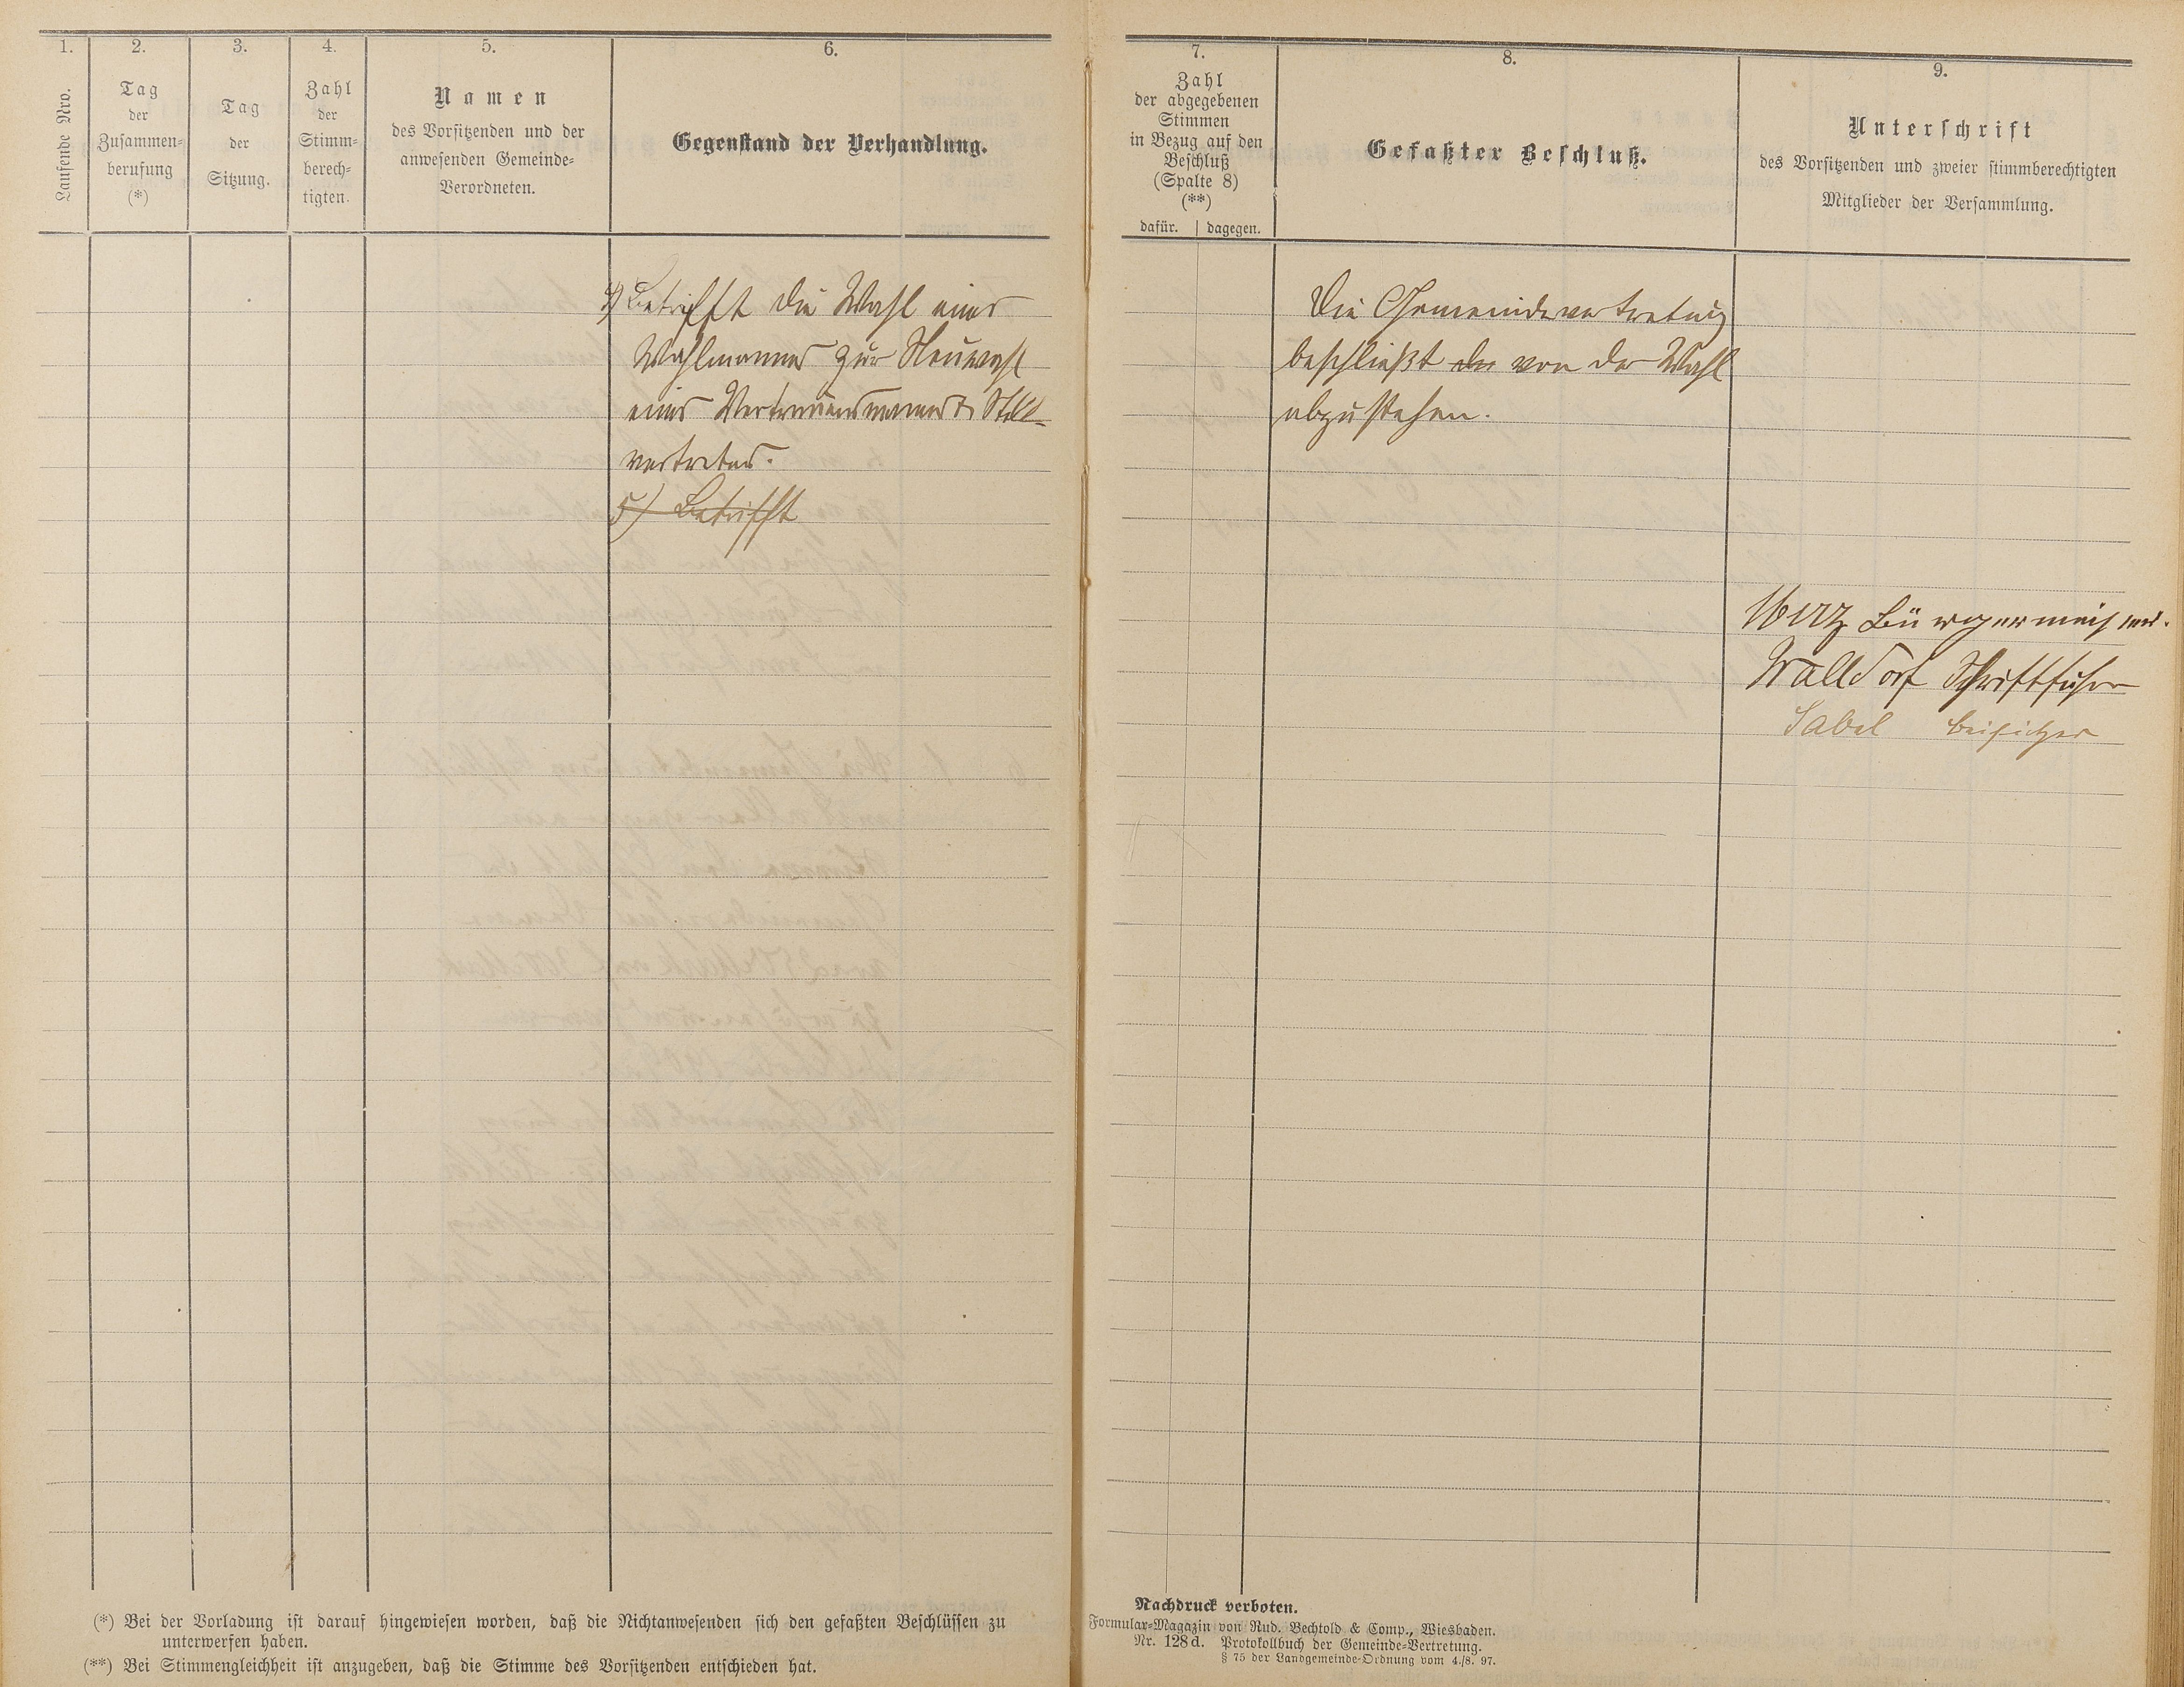 1.
Laufende Nro.
2.
Tag
der
Zusammen-
berufung
(*)
3.
Tag
der
Sitzung.
4.
Zahl
der
Stimm-
berech-
tigten.
5.
Namen
des Vorsitzenden und der
anwesenden Gemeinde-
Verordneten.
6.
Gegenstand der Verhandlung.
4) Betrifft die Wahl eines
Wahlmannes zur Neuwahl
eines Vertrauensmannes u. Stell-
vertreters.
5) Betrifft
(*) Bei der Vorladung ist darauf hingewiesen worden, daß die Nichtanwesenden sich den gefaßten Beschlüssen zu
unterwerfen haben.
(**) Bei Stimmengleichheit ist anzugeben, daß die Stimme des Vorsitzenden entschieden hat.
7.
Zahl
der abgegebenen
Stimmen
in Bezug auf den
Beschluß
(Spalte 8)
(**)
dafür. | dagegen.
8.
Gefaßter Beschluß.
Die Gemeindevertretung
beschließt der von der Wahl
abzustehen.
9.
Unterschrift
des Vorsitzenden und zweier stimmberechtigten
Mitglieder der Versammlung.
Bürgermeister.
Walldorf Schriftführer
Sabel Beisitzer
Nachdruck verboten.
Formular-Magazin von Rud. Bechtold & Comp., Wiesbaden.
Nr. 128 d. Protokollbuch der Gemeinde-Vertretung.
§ 75 der Landgemeinde-Ordnung vom 4./8. 97.